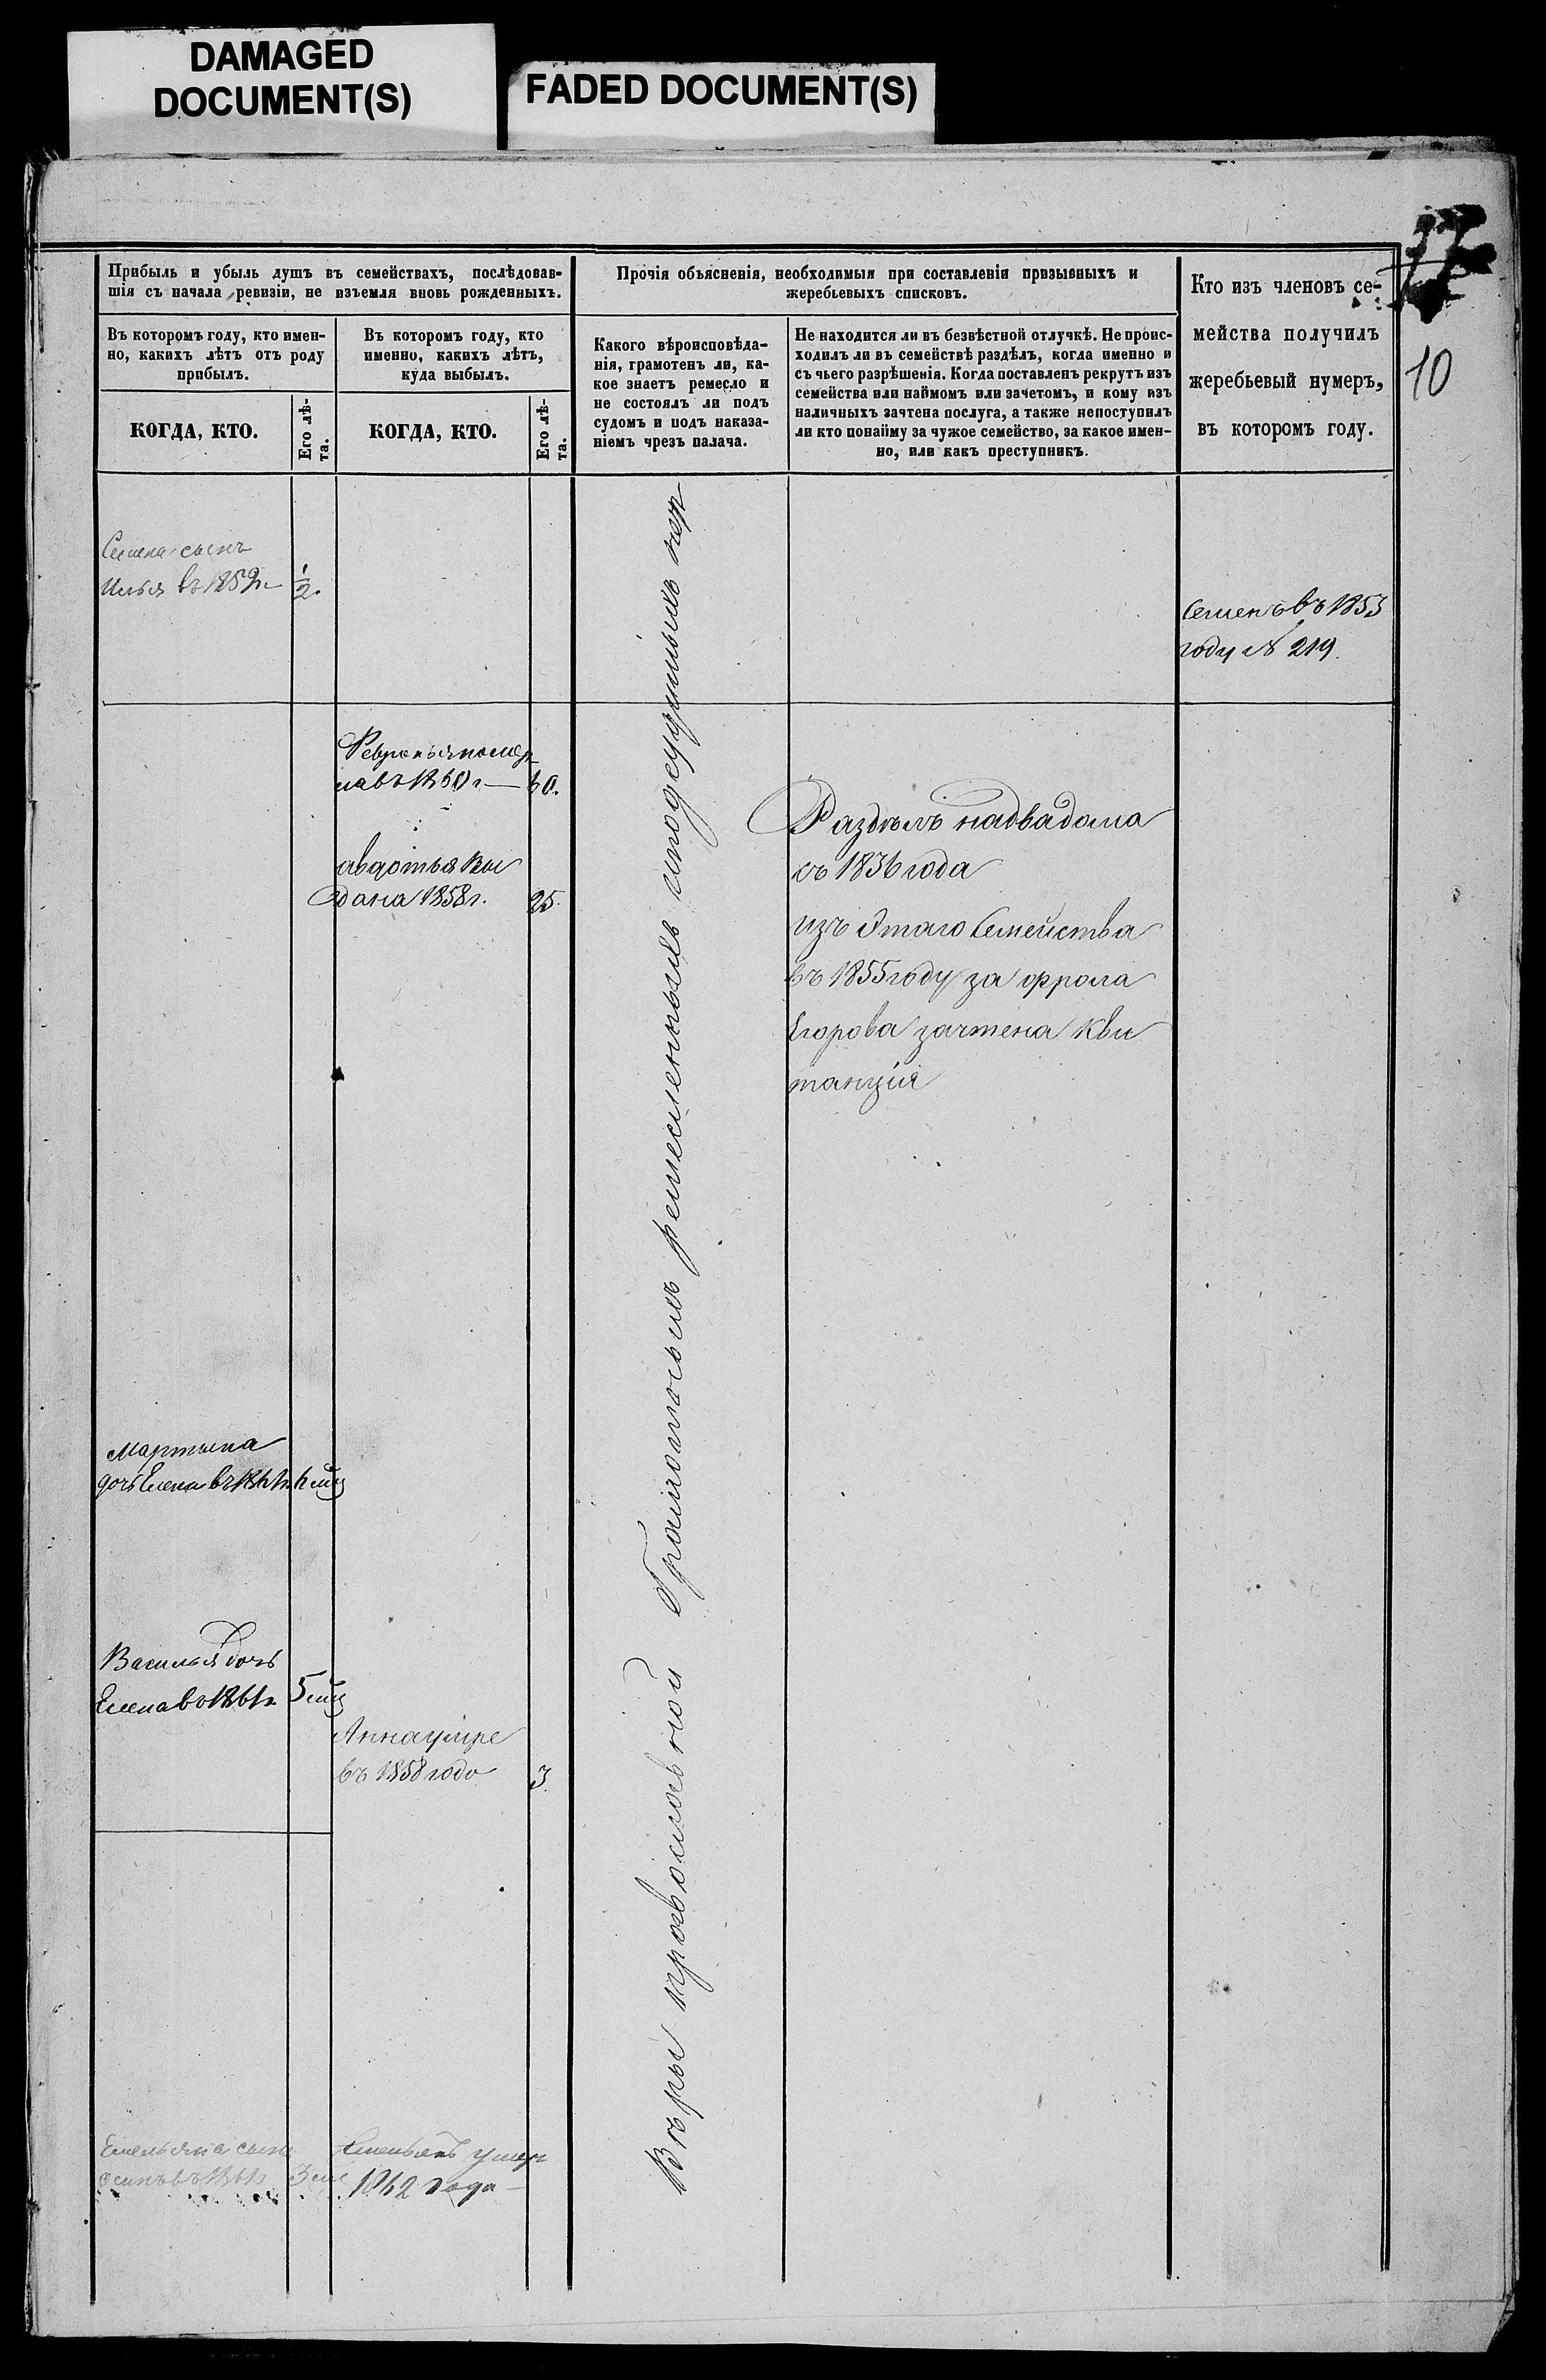 DAMAGED
DOCUMENT(S)
FADED DOCUMENT(S)
37
10
Прибыль и убыль душъ въ семействахъ, послѣдовав-
шія съ начала ревизіи, не изъемля вновь рожденныхъ.
Прочія объясненія, необходимыя при составленіи призывныхъ и
жеребьевыхъ списковъ.
Кто изъ членовъ се-
мейства получилъ
жеребьевый нумеръ,
въ которомъ году.
Въ которомъ году, кто имен-
но, какихъ лѣтъ отъ роду
прибылъ.
Въ которомъ году, кто
именно, какихъ лѣтъ,
куда выбылъ.
Какого вѣроисповѣда-
нія, грамотенъ ли, ка-
кое знаетъ ремесло и
не состоялъ ли подъ
судомъ и подъ наказа-
ніемъ чрезъ палача.
Не находится ли въ безвѣстной отлучкѣ. Не проис-
ходилъ ли въ семействѣ раздѣлъ, когда именно и
съ чьего разрѣшенія. Когда поставленъ рекрутъ изъ
семейства или наймомъ или зачетомъ, и кому изъ
наличныхъ зачтена послуга, а также непоступилъ
ли кто понайму за чужое семейство, за какое имен-
но, или какъ преступникъ.
КОГДА, КТО.
Его лѣ-
та.
КОГДА, КТО.
Его лѣ-
та.
Семена сынъ
Илья въ 1859г 1/2.
Семенъ въ 1853
году № 219.
Февронья помер
ла въ 1860 г — 60.
авдотья вы
дана 1858 г. 25.
Раздѣлъ на два дома
съ 1836 года
изъ Этаго Семейства
въ 1855 году за фрола
Егорова зачтена Кви
танція
Мартына
дочь Елена въ 1861г. 6 мц
Василья дочь
Елена въ 1861г. 5 мц
Анна умре
въ 1858 годо 3
Емельяна сынъ
осипъ въ 1861г 3 ме
умеръ
1862 Года
Вѣры православной Грамотныхъ ремесленныхъ и подсудимыхъ нѣт